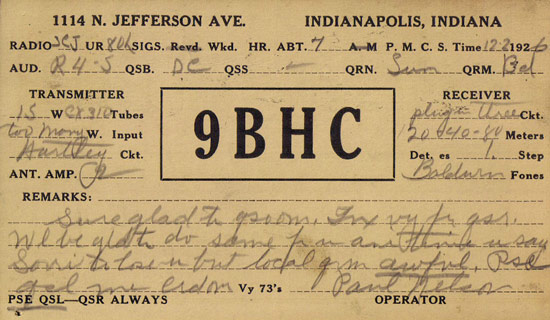 1114 N. JEFFERSON AVE. INDIANAPOLIS, INDIANA
RADIO UR SIGS. Revd. Wkd. HR. ABT. 7 A.M P.M. C.S. Time 12 2 1926
AUD. R 4-5 QSB. DC QSS - QRN. QRM. Bd
TRANSMITTER RECEIVER
15 W CX310 Tubes plug in three Ckt.
too Many W. Input 9BHC 20-40-80 Meters
Hartley Ckt. Det. es 1. Step
ANT. AMP. Baldwin Fones
REMARKS:
Sure glad to qso om. Tnx vy fr qsr.
Wl be gld to do same fr u anytime u say
Sorri to lose u but local qrm awful. Pse
qsl me crd om Vy 73's Paul Nelson
PSE QSL—QSR ALWAYS OPERATOR